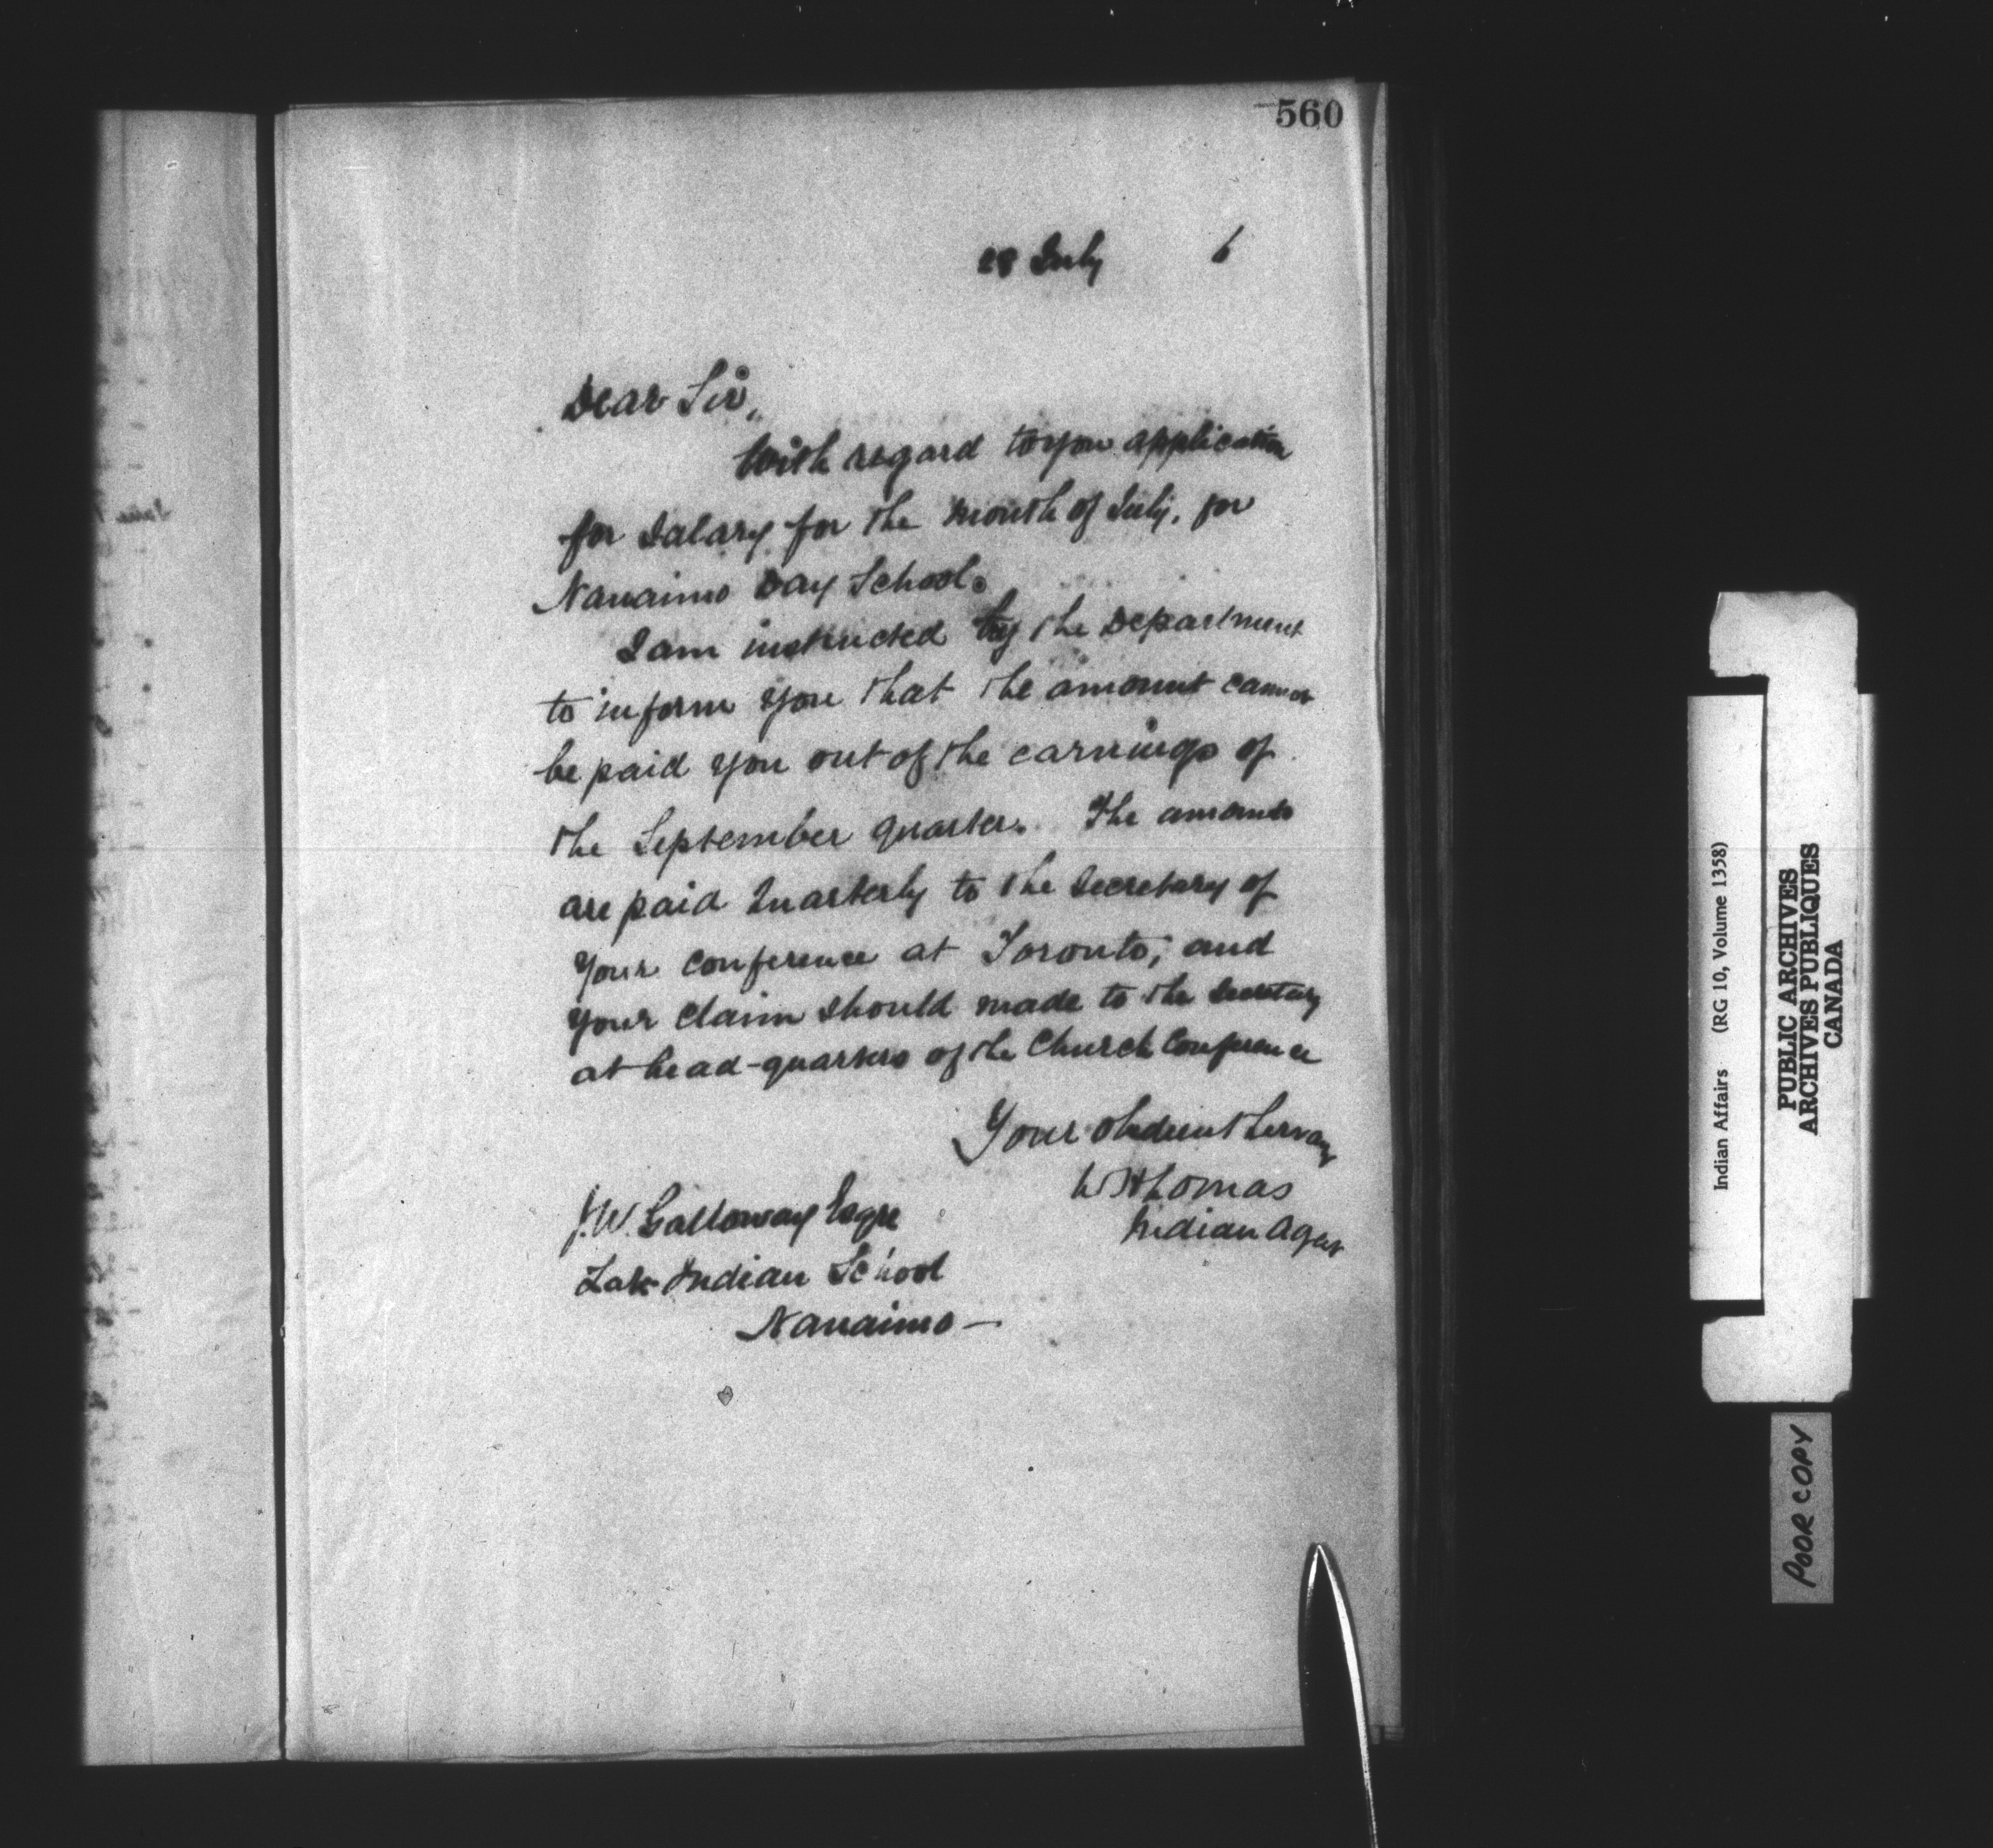 560
28 July 6
Dear Sir,
With regard to you application
for Salary for the month of July, for
Nanaimo Day School.
I am instructed by the Department
to inform you that the amount cannot
be paid you out of the earnings of
the September quarter. The amounts
are paid Quarterly to the Secretary of
your conference at Toronto; and
your claim should made to the Secretary
at head-quarters of the Church Conference
Your obedient Servant
W Thomas
Indian Agent
J.W. Galloway Esqre
Late Indian School
Nanaimo —
Indian Affairs (RG 10, Volume 1358)
PUBLIC ARCHIVES
ARCHIVES PUBLIQUES
CANADA
POOR COPY